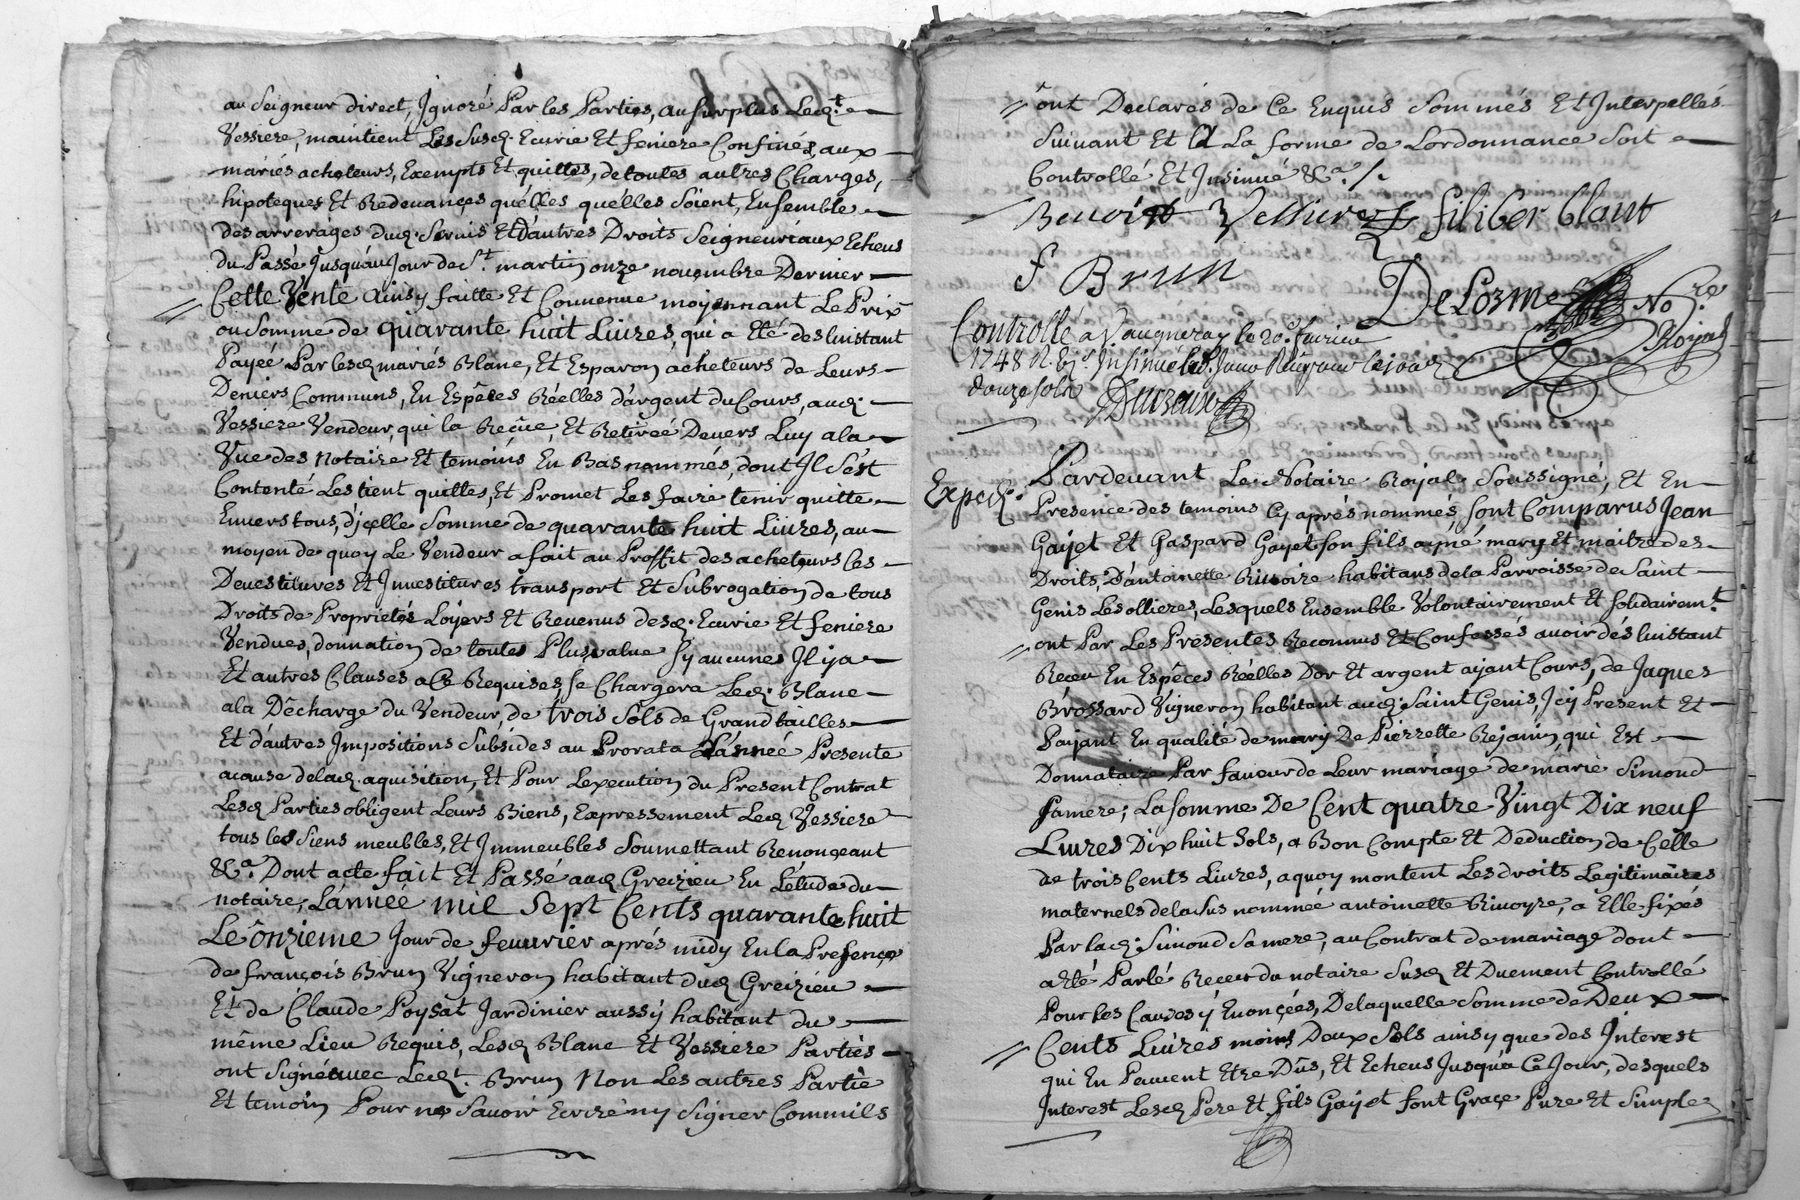 au Seigneur direct, Ignoré Par les Parties, au surplus Led.t
Vessiere, maintient Les Susd. Ecurie Et feniere Confinés, aux
mariés acheteurs, Exempts Et quittes, de toutes autres Charges,
hipoteques Et Redevances quélles quélles Soient, Ensemble
des arrerages dud. Servis Et D'autres Droits Seigneuriaux Echeus
du Passé Jusquáu Jour de St. martin onze novembre Dernier
Cette Vente ainsy faitte Et Convenue moyennant Le Prix
ou Somme de quarante huit Livres, qui a Eté des Linstant
Payée Par lesd mariés Blanc, Et Esparon acheteurs de Leurs
Deniers Communs, En Espêces Réelles d'argent du Cours, aud.
Vessiere Vendeur, qui la Reçüe, Et Retireé Devers Luy ala
Vüe des Notaire Et temoins En Bas nommés, dont Il S'est
Contenté Les tient quittes, Et Promet Les faire tenir quitte
Envers tous, d'jcelle Somme de quarante huit Livres, au
moyen de quoy Le Vendeur a fait au Proffit des acheteurs les
Devestitures Et Investitures transport Et Subrogation de tous
Droits de Proprietés Loyers Et Revenus desd. Ecurie Et feniere
Vendues, donnation de toutes Plusvalue sy aucunes Il ya
Et autres Clauses a Ce Requises, se Chargera Led. Blanc
ala Dêcharge du Vendeur, de trois Sôls de Grand tailles
Et d'autres Impositions Subsides au Prorata L'année Presente
acause de lad. aquisition, Et Pour Lexecution du Present Contrat
Lesd Parties obligent Leurs Biens, Expressement Led Vessiere
tous les Siens meubles, Et Immeubles Soumettant Renonçeant
&c.a Dont acte fait Et Passé aud Greizieu En Létude du
notaire, L'année mil Sept Cents quarante huit
Le ônzieme Jour de fevvrier aprés midy En la Presençe
de françois Brun Vigneron habitant dud Greiziéu
Et de Claude Poysat Jardinier aussÿ habitant du
même Lieu Requis, Lesd Blanc Et Vessiere Parties
ont Signé avec Led.t Brun Non Les autres Partie
Et temoin Pour ne Savoir Ecrire ny Signer Commils
ônt Declarés de Ce Enquis Sommés Et Interpellés
Suivant Et La forme de Lordonnance Soit
Controllé Et Insinué &c.a /.
Benoit Vessiere filiber blanc
f Brun
DeLorme No.re
Royal
Controllé a Vaugneray le 20e fevrier
1748
douze sols
Exped.
Pardevant Le Notaire Royal Soussigné, Et En
Presence des temoins Cy aprés nommés, Sont Comparus Jean
Gayet Et Gaspard Gayet son fils ayné mary Et maitre des
Droits, D'antoinette Rivoire habitans de la Parroisse de Saint
Genis Lesollieres, Lesquels Ensemble Volontairement Et Solidairemt.
ont Par Les Presentes Reconnus Et Confessés avoir dés Linstant
Receu En Espêces Réelles Dor Et argent ayant Cours, de Jaques
Brossard Vigneron habitant aud. Saint Genis, Jcy Present Et
Payant En qualité de mary De Pierrette Rejanin qui Est
Donnataire Par faveur de Leur mariage de marie Simond
sa mere, La Somme De Cent quatre Vingt Dix neuf
Livres Dix huit Sols, a Bon Compte Et Deduction de Celle
de trois Cents Livres, a quoy montent Les droits Legitimaires
maternels de la Sus nommée antoinette Rivoyre, a Elle fixés
Par lad. Simond Sa mere, au Contrat de mariage dont
a Eté Parlé Receu du notaire Susd Et Duement Controllé
Pour les Causes ÿ Enonçées, De laquelle Somme de Deux
Cents Livres moins Deux Sols ainsy que des Interest
qui En Peuvent Etre Dûs, Et Echeus Jusqu'a Ce Jour, desquels
Interest Lesd Pere Et fils Gayet font Graçe Pure Et Simple